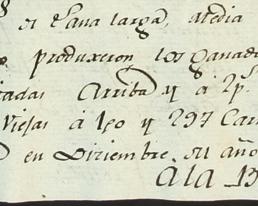 si es lana larga, media
produxeron los ganad
tadas Arriba y à 2 ps.
Viejas à 190 y 297 Car
en Diziembre su año
Ala 13